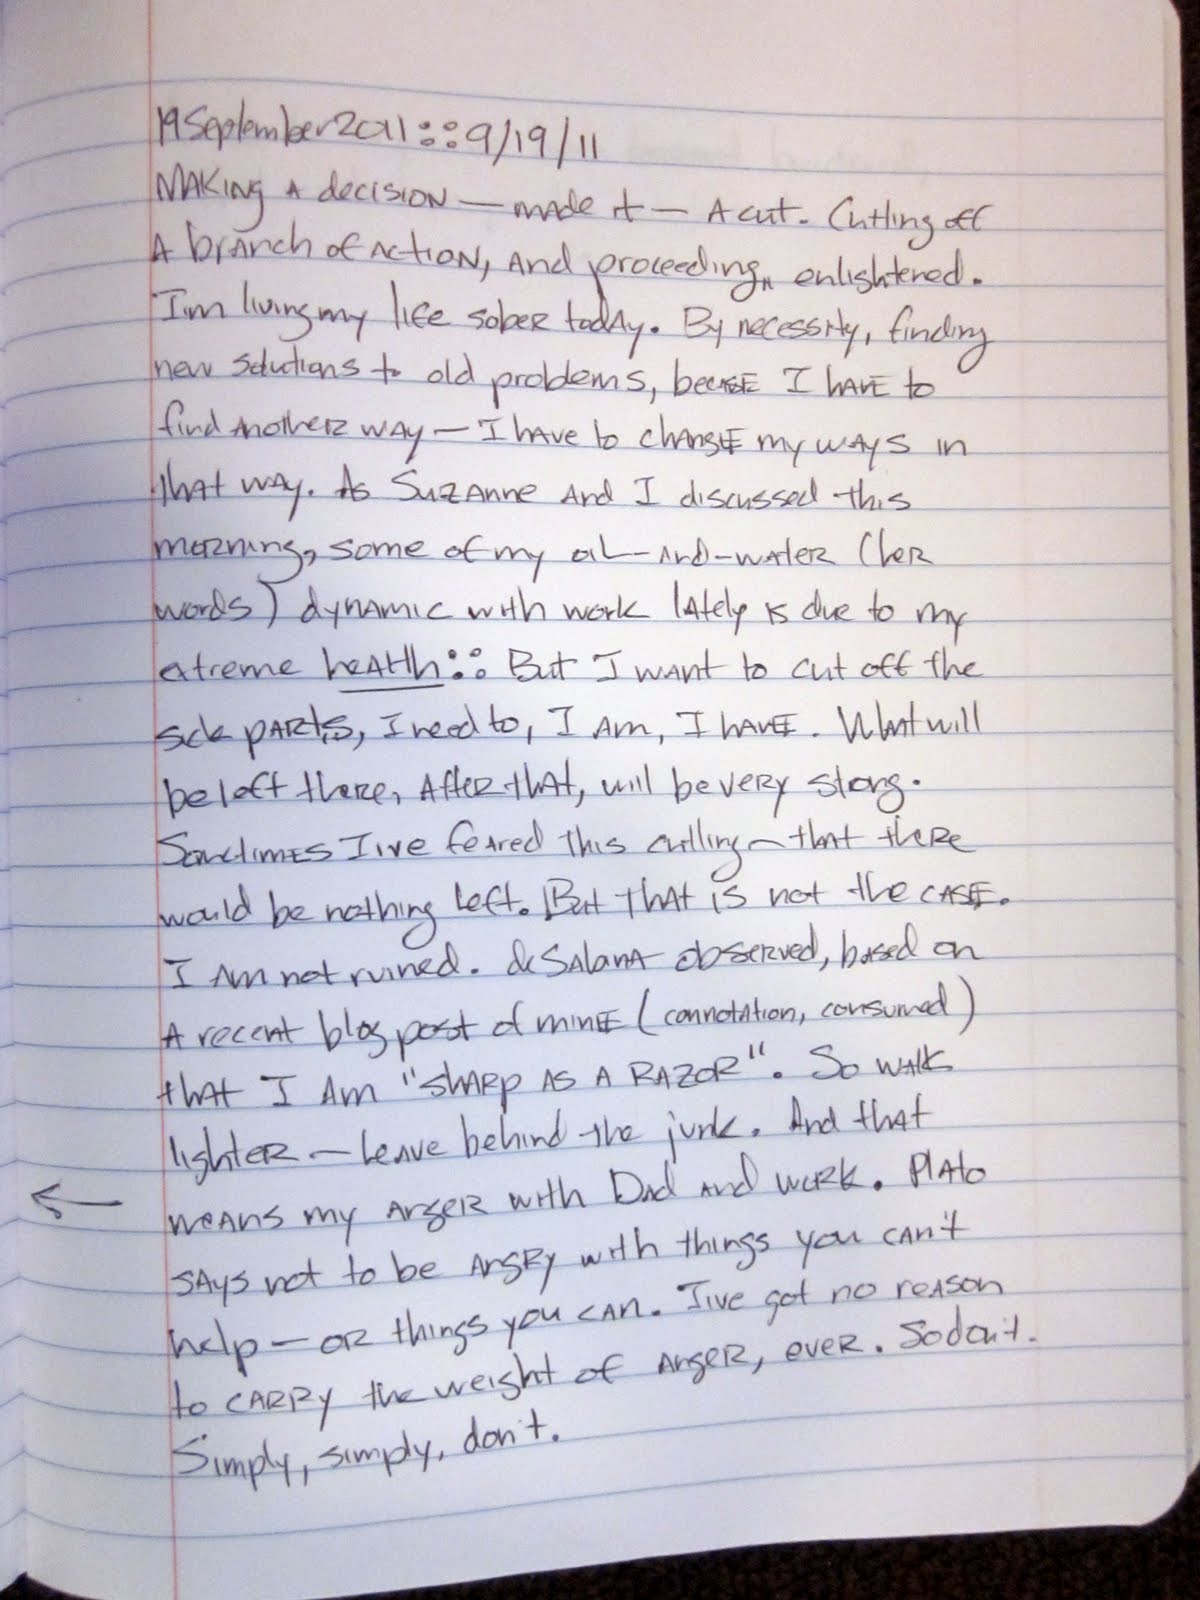 19 September 2011 :: 9/19/11
Making a decision — made it — A cut. Cutting off
A branch of action, and proceeding, enlightened.
I'm living my life sober today. By necessity, finding
new solutions to old problems, because I have to
find another way — I have to change my ways in
that way. As Suzanne and I discussed this
morning, some of my oil-and-water (her
words) dynamic with work lately is due to my
extreme health :: But I want to cut off the
sick parts, I need to, I am, I have. What will
be left there, after that, will be very strong.
Sometimes I've feared this cutting — that there
would be nothing left. But that is not the case.
I am not ruined. observed, based on
a recent blog post of mine (connotation, consumed)
that I am "sharp as a razor". So walk
lighter — leave behind the junk. And that
means my anger with Dad and work. Plato
says not to be angry with things you can't
help — or things you can. I've got no reason
to carry the weight of anger, ever. So don't.
Simply, simply, don't.